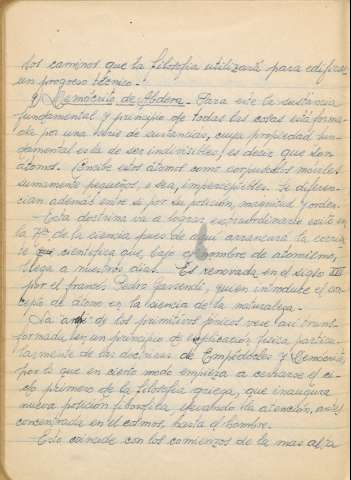 los caminos que la filosofía utilizará para edificar
un progreso técnico.-
Demócrito de Abdera.- Para éste la sustancia
fundamental y principio de todas las cosas está forma-
da por una serie de sustancias, cuya propiedad fun-
damental es la de ser indivisibles, es decir que son
átomos. Concibe estos átomos como corpúsculos móviles
sumamente pequeños, o sea, imperceptibles. Se diferen-
cian además entre sí por su posición, magnitud y orden.-
Esta doctrina va a lograr extraordinario éxito en
la de la ciencia pues de aquí arrancará la corrien-
te científica que, bajo el nombre de atomismo,
llega a nuestros días. Es renovada en el siglo XVII
por el francés Pedro Gassendi, quien introduce el con-
cepto de átomo en la ciencia de la naturaleza.-
La de los primitivos jónicos vese aquí trans-
formada en un principio de explicación física particu-
larmente de las doctrinas de Empédocles y Demócrito,
por lo que en cierto modo empieza a cerrarse el ci-
clo primero de la filosofía griega, que inaugura
nueva posición filosófica, elevando la atención, antes
concentrada en el cosmos, hasta el hombre.-
Esto coincide con los comienzos de la mas alta